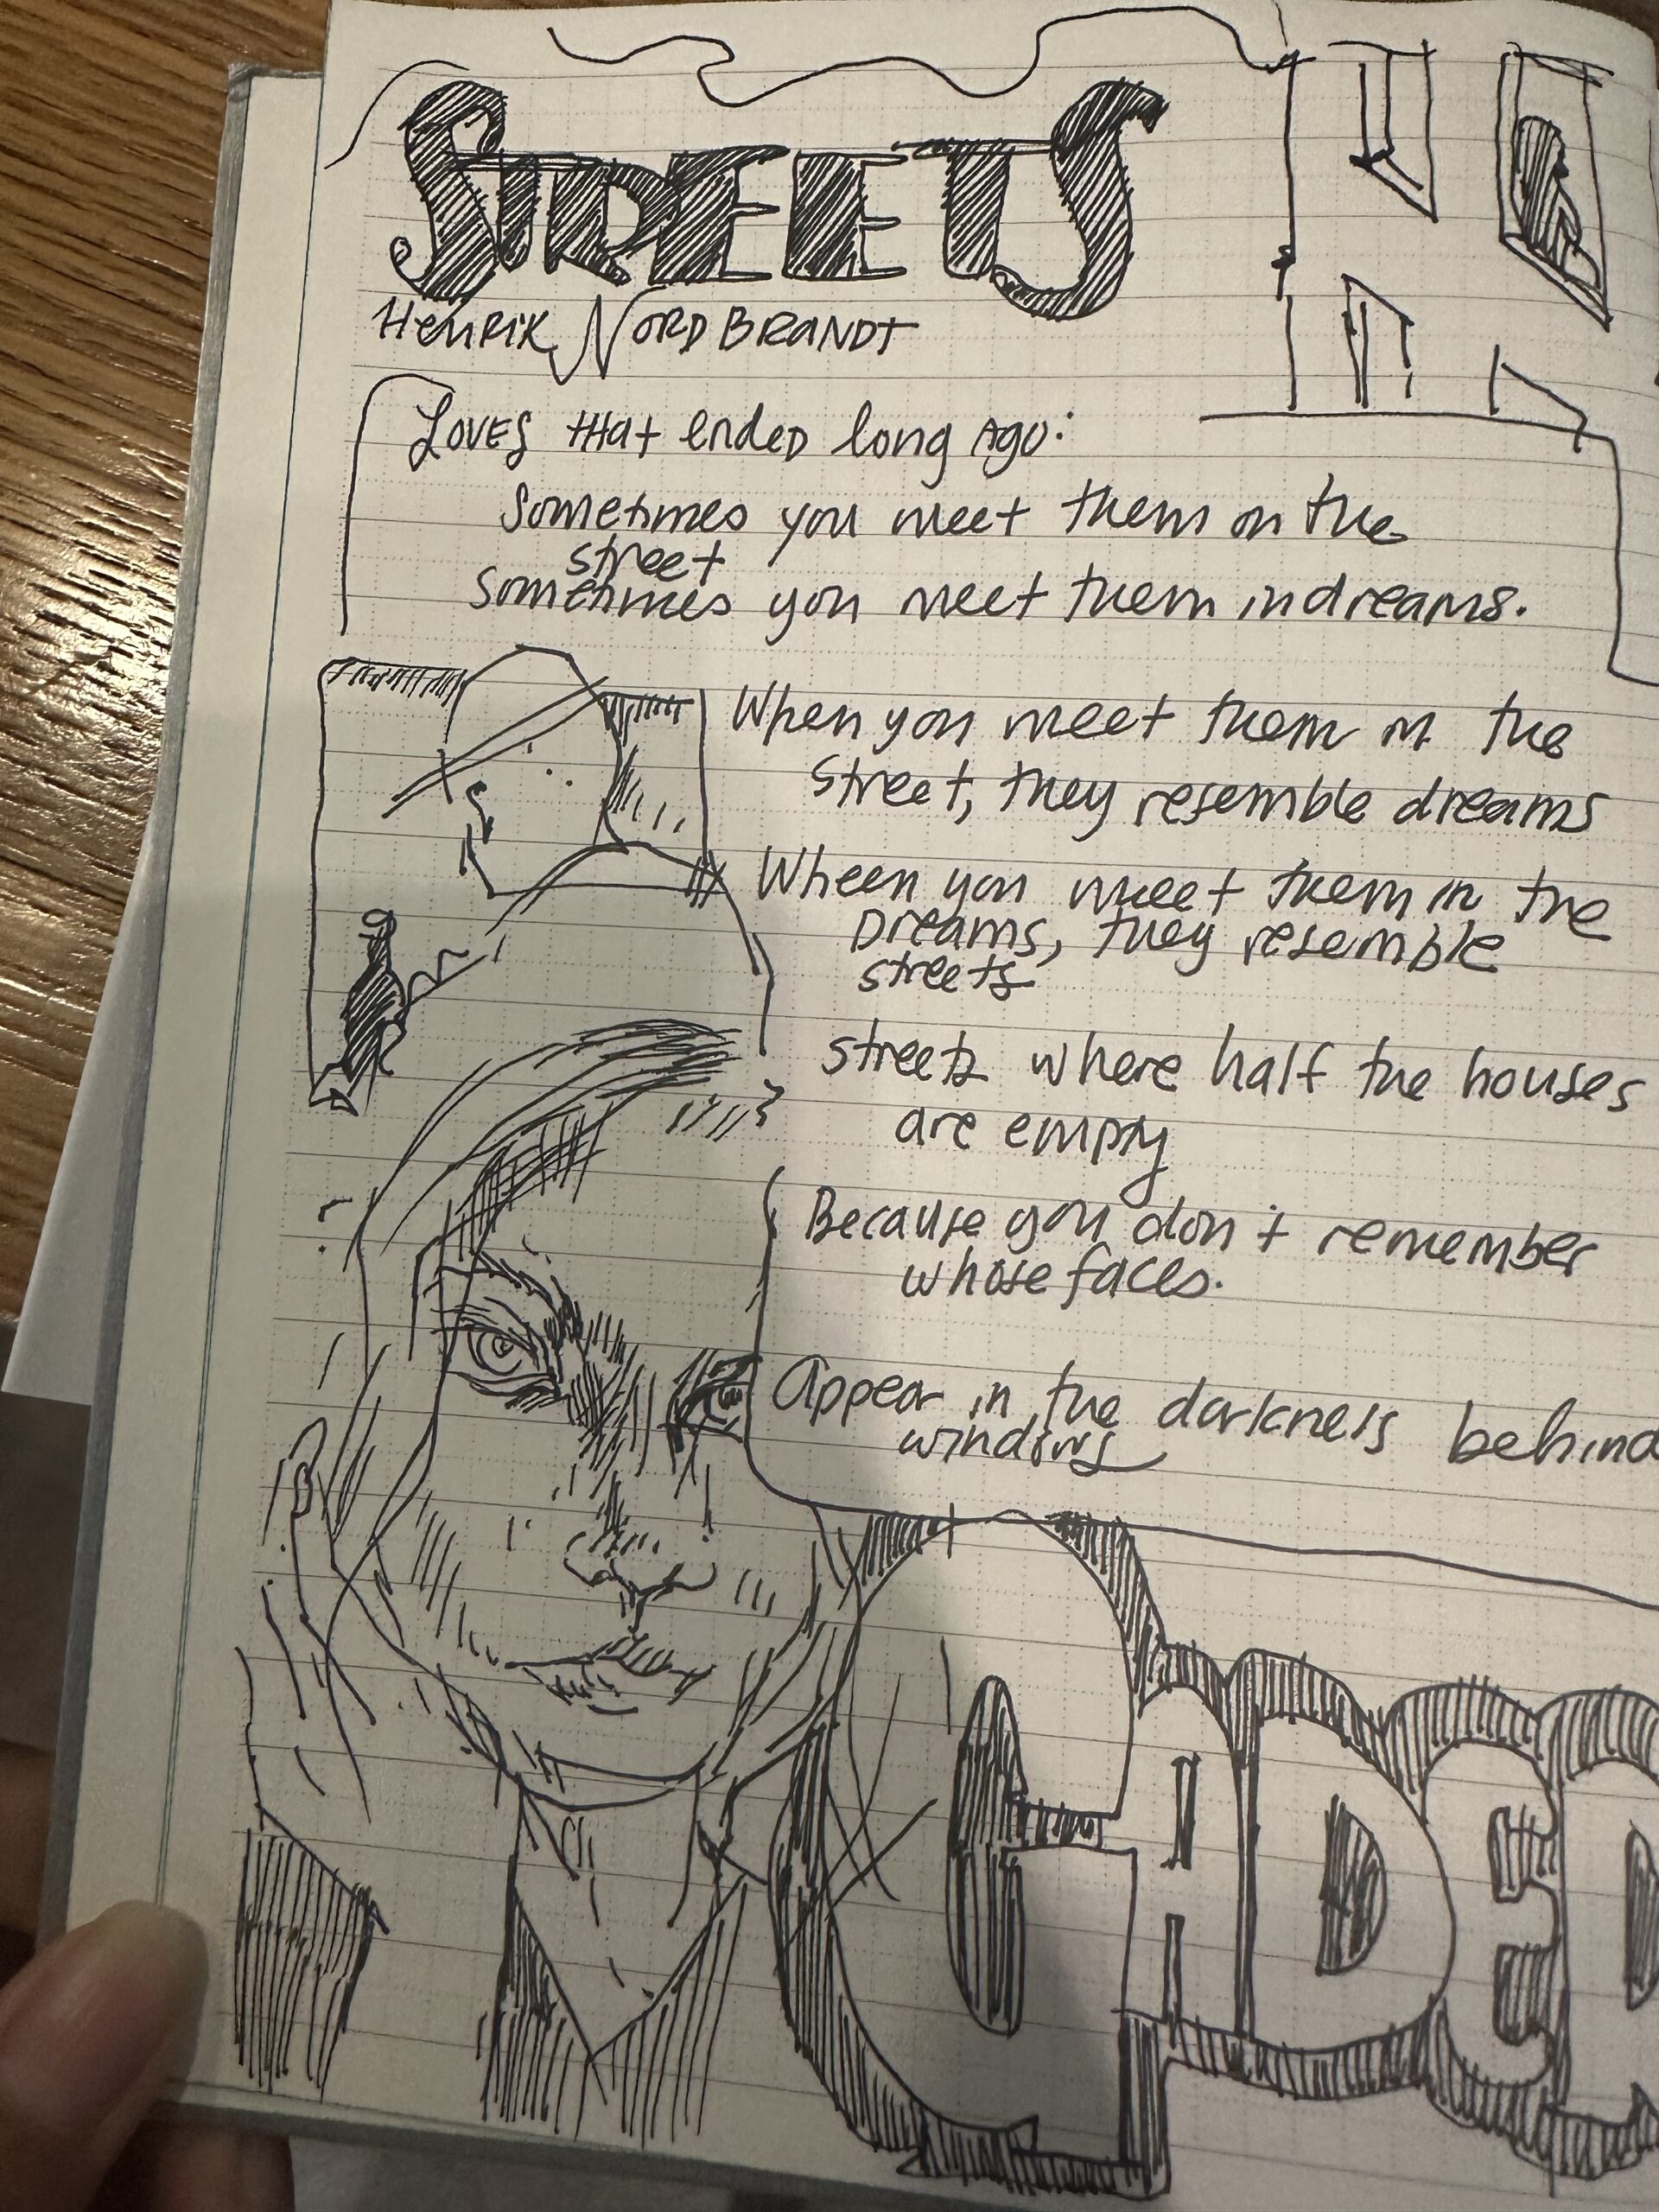 STREETS
Henrik NordBrandt
Loves that ended long ago:
Sometimes you meet them on the
street
Sometimes you meet them in dreams.
When you meet them in the
street, they resemble dreams
Wheen you meet them in the
Dreams, they resemble
streets
streets where half the houses
are empty
Because you don't remember
whose faces.
Appear in the darkness behind
windows